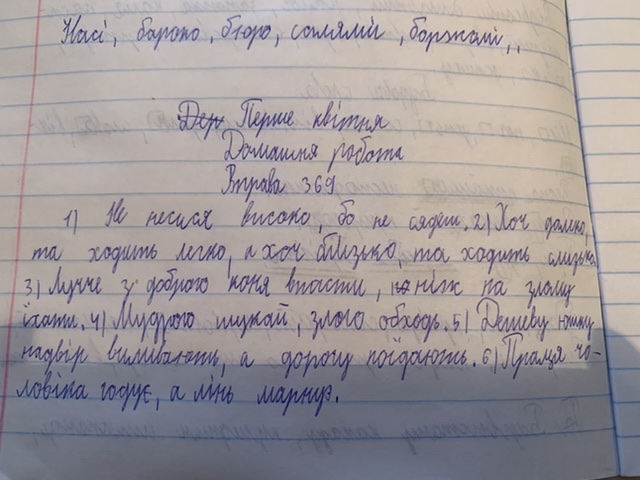 Насі, бароко, бюро, салямі, боржомі,,
Дер Перше квітня
Домашня робота
Вправа 369
1) Не несися високо, бо не сядеш. 2) Хоч далеко,
та ходить легко, а хоч близько, та ходить слизько
3) Лучче з доброго коня впасти, ніж на злому
їхати. 4) Мудрого шукай, злого обходь. 5) Дешеву юшку
надвір виливають, а дорогу поїдають. 6) Праця чо-
ловіка годує, а лінь марнує.